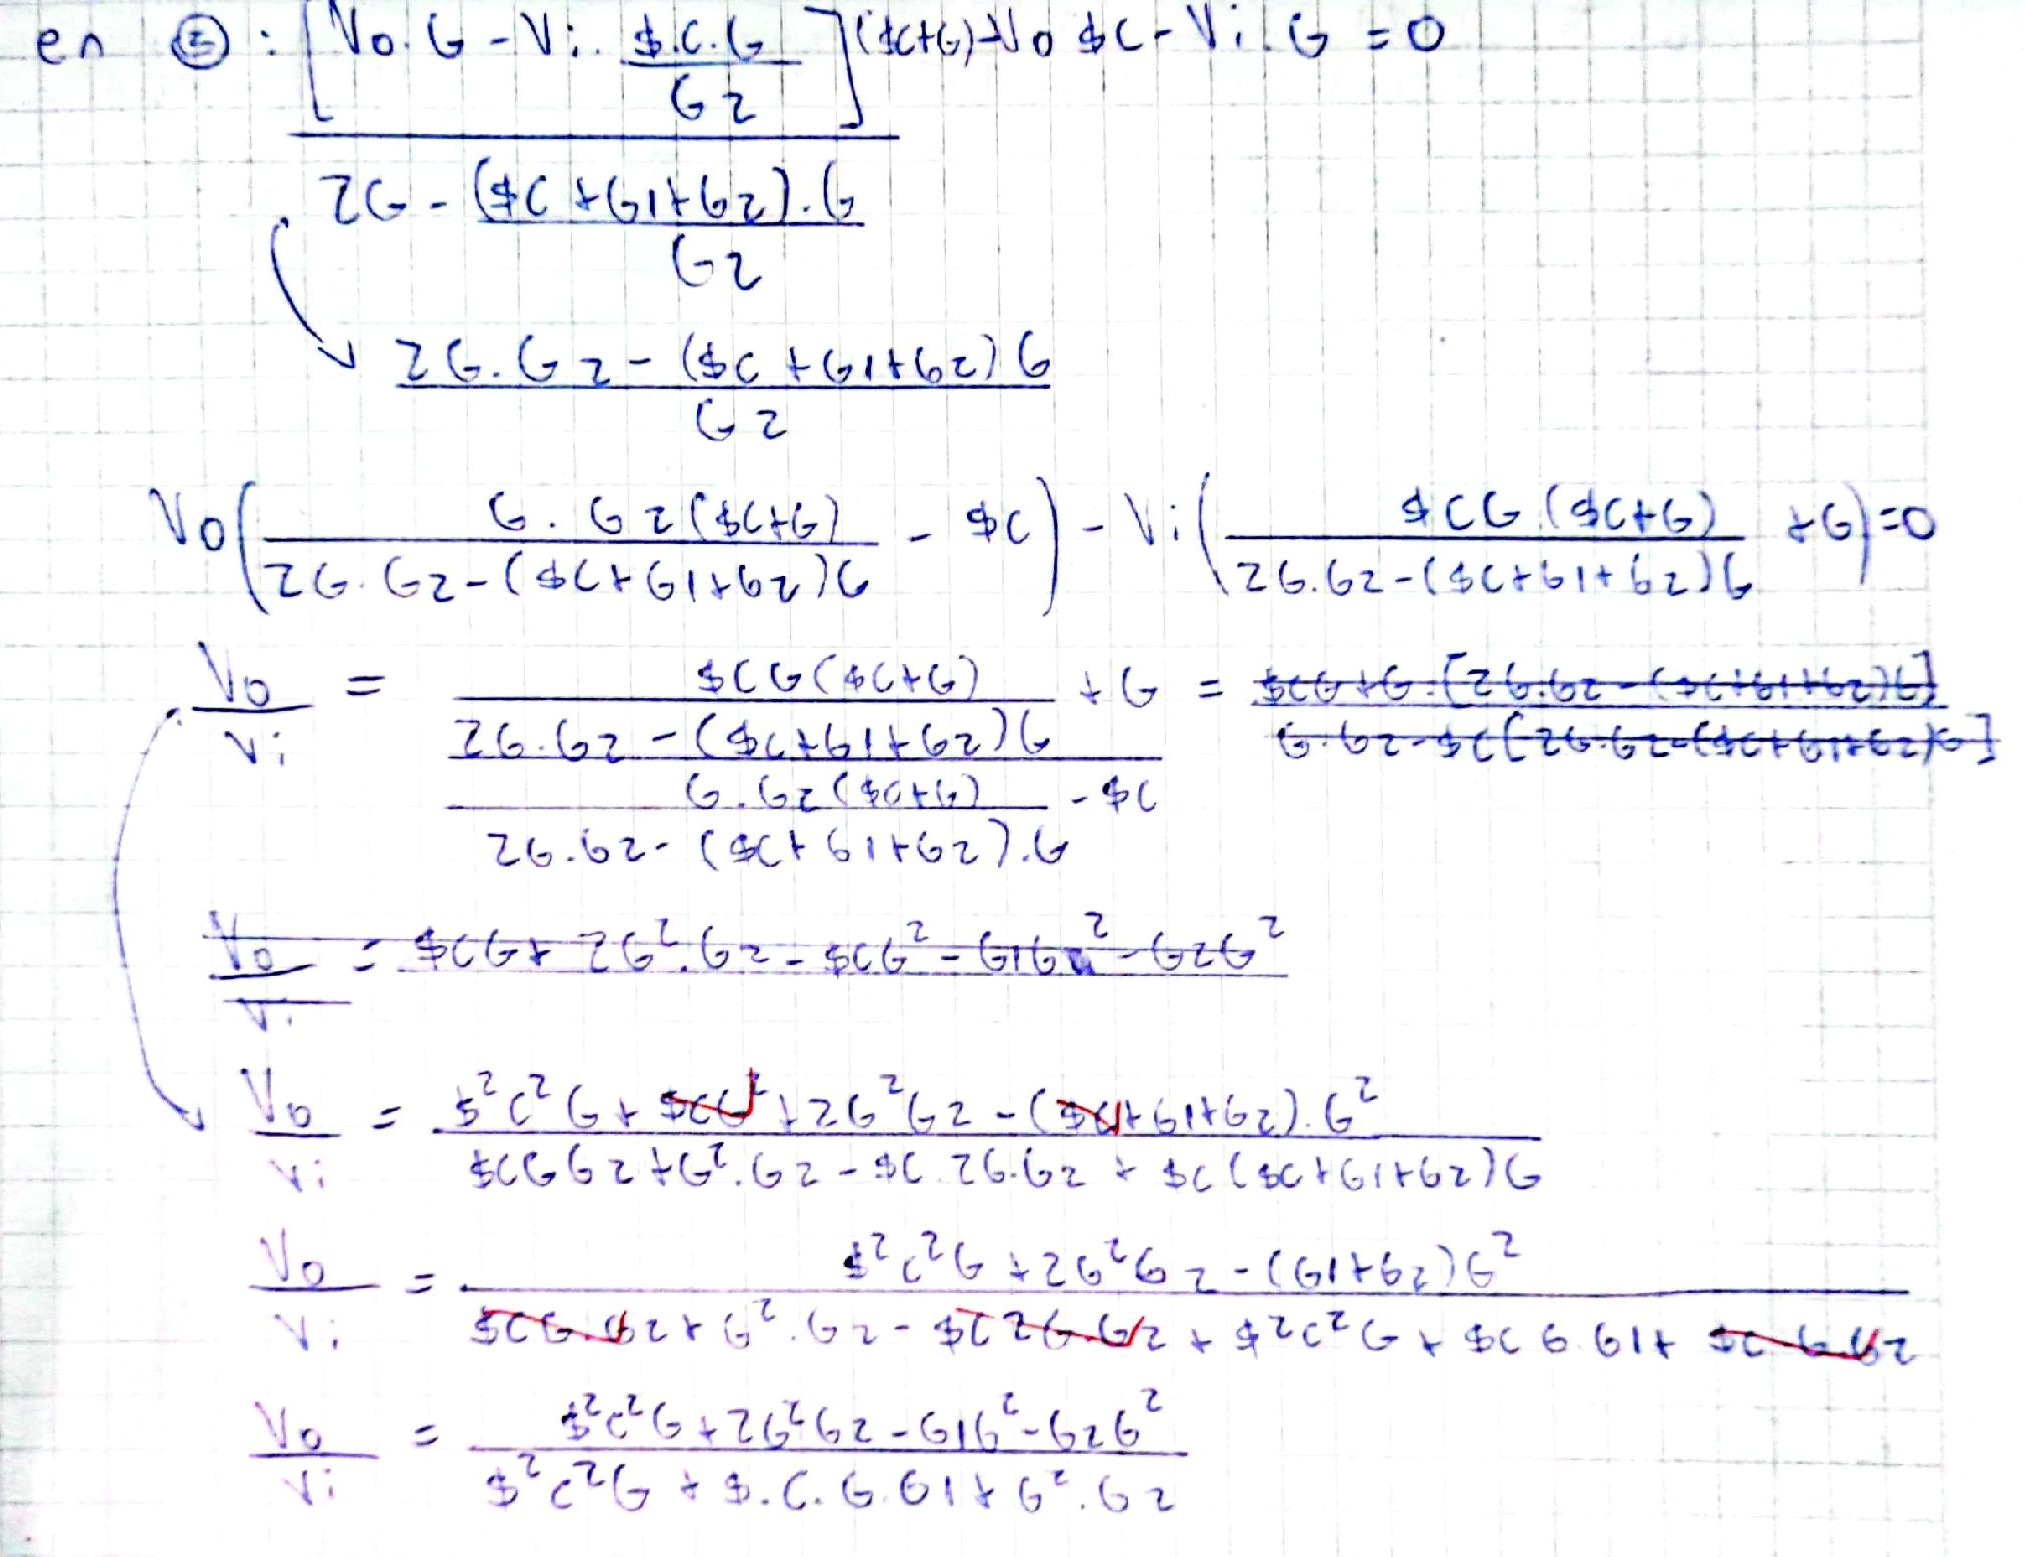 en ②: [Vo.G - Vi. $.C.G / G2]($C+G) - Vo $C - Vi.G = 0
2G - ($C+G1+G2).G / G2
2G.G2 - ($C+G1+G2)G / G2
Vo( G.G2($C+G) / 2G.G2-($C+G1+G2)G - $C) - Vi( $CG($C+G) / 2G.G2-($C+G1+G2)G + G) = 0
Vo/Vi = $CG($C+G) / 2G.G2-($C+G1+G2)G + G / G.G2($C+G) / 2G.G2-($C+G1+G2).G - $C = $CG+G.[2G.G2-($C+G1+G2)G] / G.G2-$C[2G.G2-($C+G1+G2)G]
Vo/Vi = $CG + 2G².G2 - $CG² - G1G² - G2G²
Vo/Vi = $²C²G + $CG² + 2G²G2 - ($C+G1+G2).G² / $CGG2 + G².G2 - $C.2G.G2 + $C($C+G1+G2)G
Vo/Vi = $²C²G + 2G²G2 - (G1+G2)G² / $CG.G2 + G².G2 - $C2G.G2 + $²C²G + $CG.G1 + $C.G.G2
Vo/Vi = $²C²G + 2G²G2 - G1G² - G2G² / $²C²G + $.C.G.G1 + G².G2